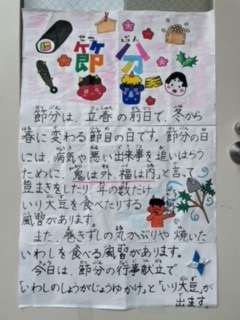 節分
節分は、立春の前日で、冬から
春に変わる節目の日です。節分の日
には、病気や悪い出来事を追いはらう
ために、「鬼は外、福は内」と言って
豆まきをしたり、年の数だけ
いり大豆を食べたりする
風習があります。
また、巻きずしの丸かぶりや焼いた
いわしを食べる風習があります。
今日は、節分の行事献立で
「いわしのしょうがじょうゆかけ」と「いり大豆」が
出ます。